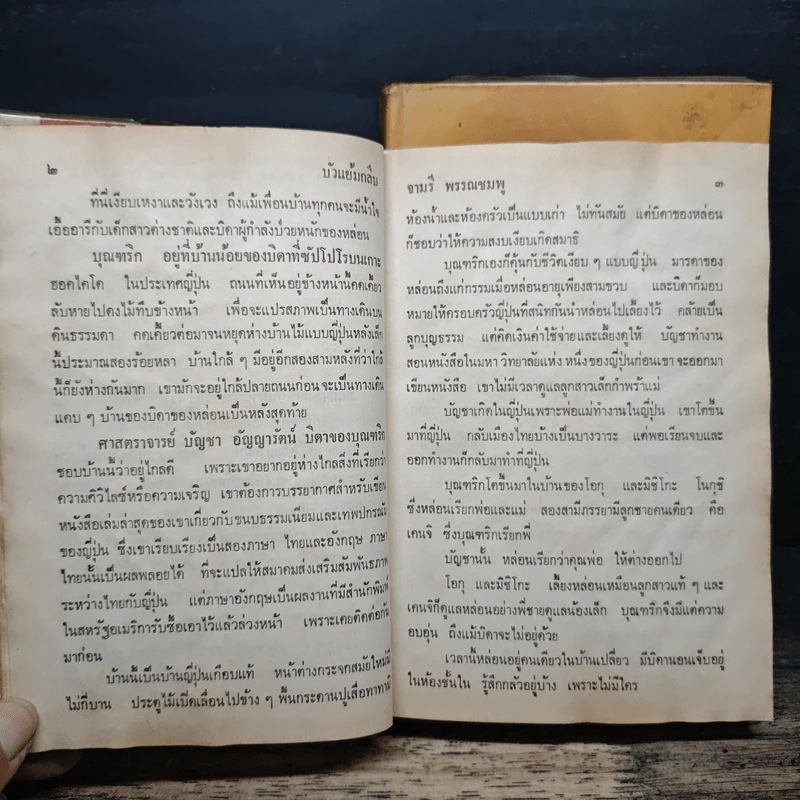 ๒
บัวแย้มกลีบ
ที่นี่เงียบเหงาและวังเวง ถึงแม้เพื่อนบ้านทุกคนจะมีน้ำใจ
เอื้ออารีกับเด็กสาวต่างชาติและบิดาผู้กำลังป่วยหนักของหล่อน
บุณฑริก อยู่ที่บ้านน้อยของบิดาที่ซัปโปโรบนเกาะ
ฮอคไคโด ในประเทศญี่ปุ่น ถนนที่เห็นอยู่ข้างหน้านี้คดเคี้ยว
ลับหายไปดงไม้ทึบข้างหน้า เพื่อจะแปรสภาพเป็นทางเดินบน
ดินธรรมดา คดเคี้ยวต่อมาจนหยุดห่างบ้านไม้แบบญี่ปุ่นหลังเล็ก
นี้ประมาณสองร้อยหลา บ้านใกล้ ๆ มีอยู่อีกสองสามหลังที่ว่าใกล้
นี้ก็ยังห่างกันมาก เขามักจะอยู่ใกล้ปลายถนนก่อนจะเป็นทางเดิน
แคบ ๆ บ้านของบิดาของหล่อนเป็นหลังสุดท้าย
ศาสตราจารย์ บัญชา อัญญารัตน์ บิดาของบุณฑริก
ชอบบ้านนี้ว่าอยู่ไกลดี เพราะเขาอยากอยู่ห่างไกลสิ่งที่เรียกว่า
ความศิวิไลซ์หรือความเจริญ เขาต้องการบรรยากาศสำหรับเขียน
หนังสือเล่มล่าสุดของเขาเกี่ยวกับขนบธรรมเนียมและเทพปกรณัม
ของญี่ปุ่น ซึ่งเขาเรียบเรียงเป็นสองภาษา ไทยและอังกฤษ ภาษา
ไทยนั้นเป็นผลพลอยได้ ที่จะแปลให้สมาคมส่งเสริมสัมพันธภาพ
ระหว่างไทยกับญี่ปุ่น แต่ภาษาอังกฤษเป็นผลงานที่มีสำนักพิมพ์
ในสหรัฐอเมริการับซื้อเอาไว้แล้วล่วงหน้า เพราะเคยติดต่อกัน
มาก่อน
บ้านนี้เป็นบ้านญี่ปุ่นเกือบแท้ หน้าต่างกระจกสมัยใหม่มี
ไม่กี่บาน ประตูไม้เปิดเลื่อนไปข้าง ๆ พื้นกระดานปูเสื่อทาทามิ
จามรี พรรณชมพู
๓
ห้องน้ำและห้องครัวเป็นแบบเก่า ไม่ทันสมัย แต่บิดาของหล่อน
ก็ชอบว่าให้ความสงบเงียบเกิดสมาธิ
บุณฑริกเองก็คุ้นกับชีวิตเงียบ ๆ แบบญี่ปุ่น มารดาของ
หล่อนถึงแก่กรรมเมื่อหล่อนอายุเพียงสามขวบ และบิดาก็มอบ
หมายให้ครอบครัวญี่ปุ่นที่สนิทกันนำหล่อนไปเลี้ยงไว้ คล้ายเป็น
ลูกบุญธรรม แต่คิดเงินค่าใช้จ่ายและเลี้ยงดูให้ บัญชาทำงาน
สอนหนังสือในมหาวิทยาลัยแห่งหนึ่งของญี่ปุ่นก่อนเขาจะออกมา
เขียนหนังสือ เขาไม่มีเวลาดูแลลูกสาวเล็กกำพร้าแม่
บัญชาเกิดในญี่ปุ่นเพราะพ่อแม่ทำงานในญี่ปุ่น เขาโตขึ้น
มาที่ญี่ปุ่น กลับเมืองไทยบ้างเป็นบางวาระ แต่พอเรียนจบและ
ออกทำงานก็กลับมาทำที่ญี่ปุ่น
บุณฑริกโตขึ้นมาในบ้านของโอกุ และมิชิโกะ โนกุชิ
ซึ่งหล่อนเรียกพ่อและแม่ สองสามีภรรยามีลูกชายคนเดียว คือ
เคนจิ ซึ่งบุณฑริกเรียกพี่
บัญชานั้น หล่อนเรียกว่าคุณพ่อ ให้ต่างออกไป
โอกุ และมิชิโกะ เลี้ยงหล่อนเหมือนลูกสาวแท้ ๆ และ
เคนจิก็ดูแลหล่อนอย่างพี่ชายดูแลน้องเล็ก บุณฑริกจึงมีแต่ความ
อบอุ่น ถึงแม้บิดาจะไม่อยู่ด้วย
เวลานี้หล่อนอยู่คนเดียวในบ้านเปลี่ยว มีบิดานอนเจ็บอยู่
ในห้องชั้นใน รู้สึกกลัวอยู่บ้าง เพราะไม่มีใคร